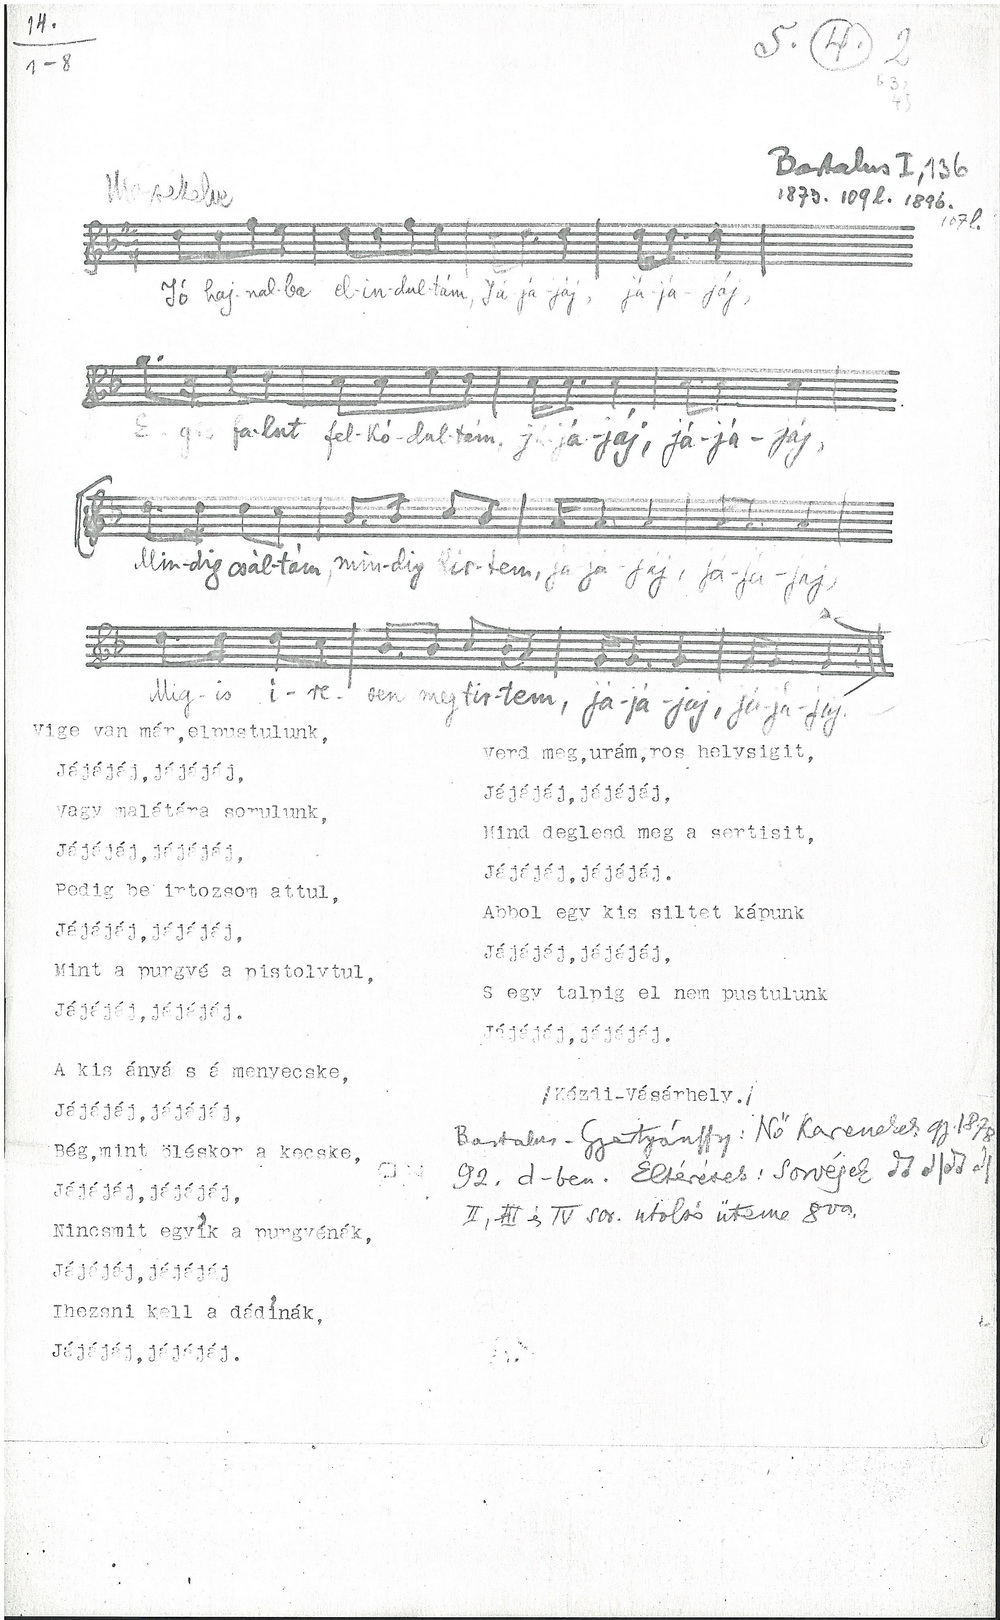 14.
1-8
5. 4. 2
Bartalus I, 136
1873. 109 l. 1896.
107 l.
Jó haj-nal-ba el-in-dul-tám, Já-já-jáj, já-já-jáj,
fa-lut fel-kó-dul-tám, já-já-jáj, já-já-jáj,
Min-dig csál-tám, min-dig tir-tem, já-já-jáj, já-já-jáj,
Mig-is i-re-sen meg tir-tem, já-já-jáj, já-já-jáj.
Vige van már,elpustulunk,
Jájájáj,jájájáj,
Vagy malátára sorulunk,
Jájájáj,jájájáj,
Pedig be irtozsom attul,
Jájájáj,jájájáj,
Mint a purgyé a pistolytul,
Jájájáj,jájájáj.
A kis ányá s á menyecske,
Jájájáj,jájájáj,
Bég,mint öléskor a kecske,
Jájájáj,jájájáj,
Nincsmit egyík a purgyénák,
Jájájáj,jájájáj
Ihezsni kell a dádínák,
Jájájáj,jájájáj.
Verd meg,urám,ros helysigit,
Jájájáj,jájájáj,
Mind deglesd meg a sertisit,
Jájájáj,jájájáj.
Abbol egy kis siltet kápunk
Jájájáj,jájájáj,
S egy talpig el nem pustulunk
Jájájáj,jájájáj.
/Kézdi-Vásárhely./
Bartalus - Gyertyánffy: Nő Karénekek gy. 1878
92. d-ben. Eltérések: Sorvégek
II, III és IV sor. utolsó üteme 8va.